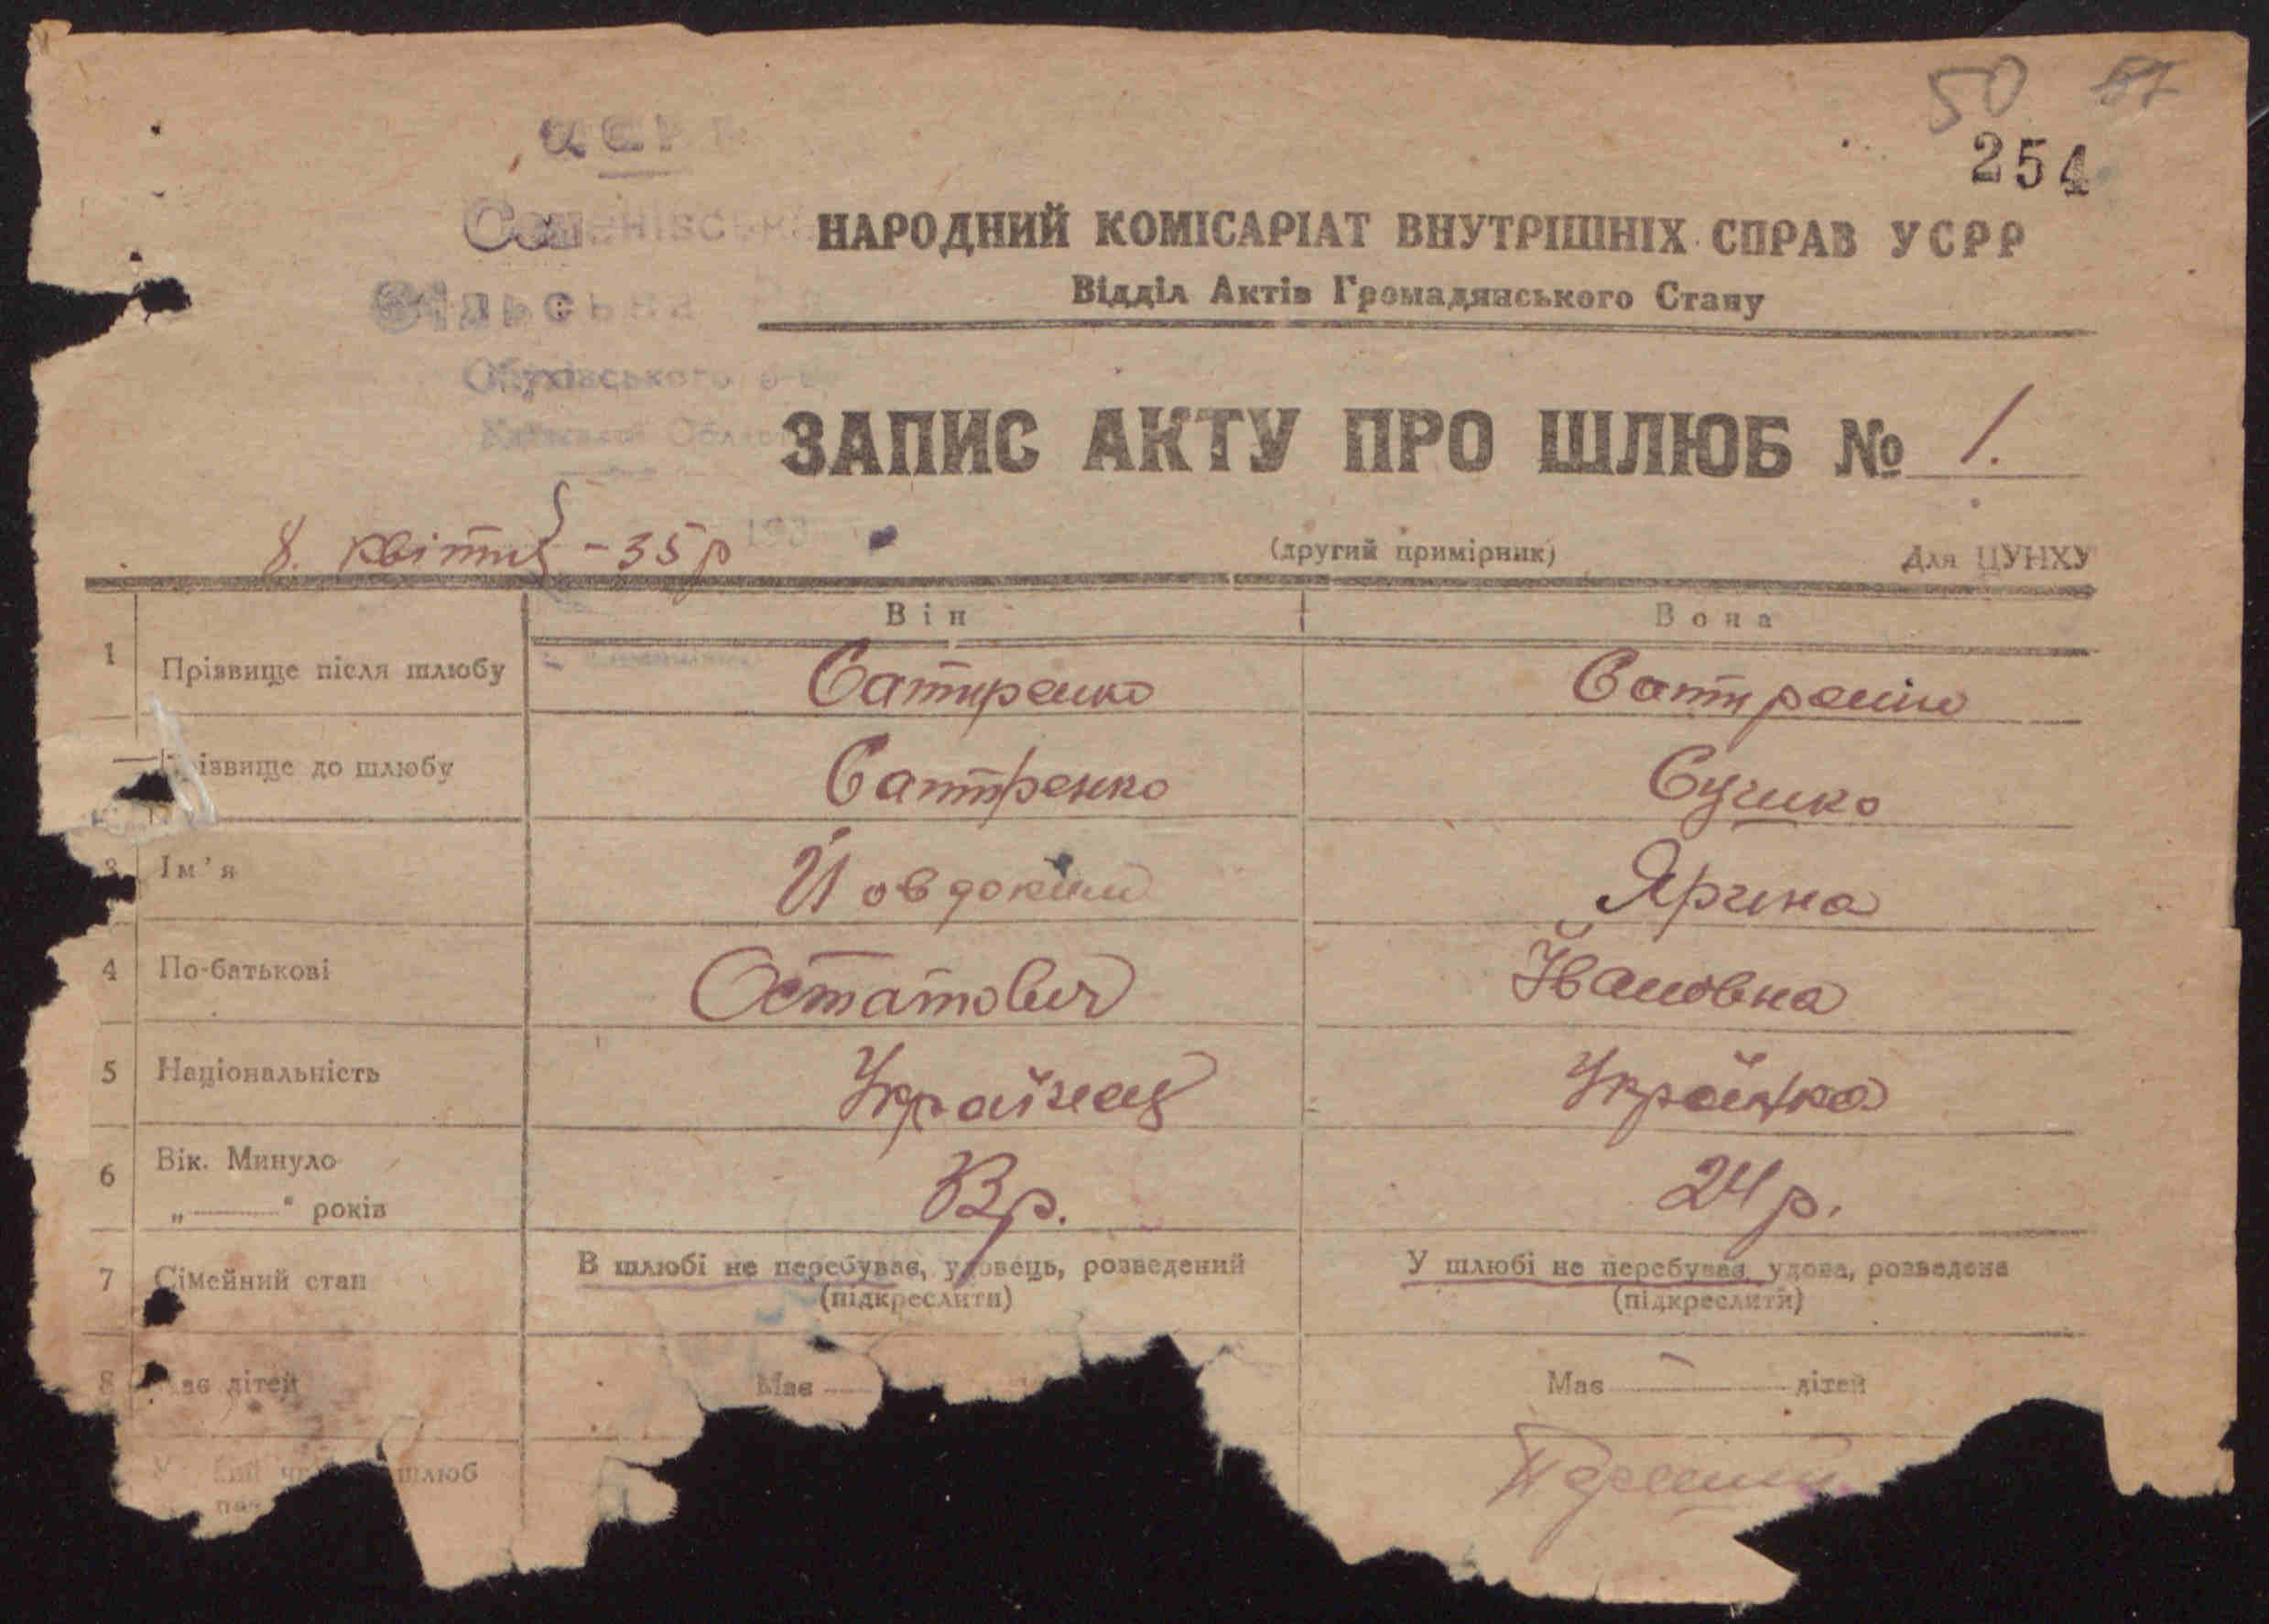 50 57
254
УСРР
Семенівська
Сільська
Обухівського р-ну
Київської Області
НАРОДНИЙ КОМІСАРІАТ ВНУТРІШНІХ СПРАВ УСРР
Відділ Актів Громадянського Стану
ЗАПИС АКТУ ПРО ШЛЮБ № 1.
8. квітня -35р 193
(другий примірник) Для ЦУНХУ
Він Вона
1 Прізвище після шлюбу Сатиренко Сатиренко
ізвище до шлюбу Сатиренко Сушко
3 Ім'я Йовдоким Ярина
4 По-батькові Остапович Йвановна
5 Національність Українец Українка
6 Вік. Минуло „——" років 23р. 24р.
7 Сімейний стан В шлюбі не перебував, удовець, розведений (підкреслити) У шлюбі не перебував, удова, розведена (підкреслити)
8 Має дітей Має — Має — дітей
шлюб Первший